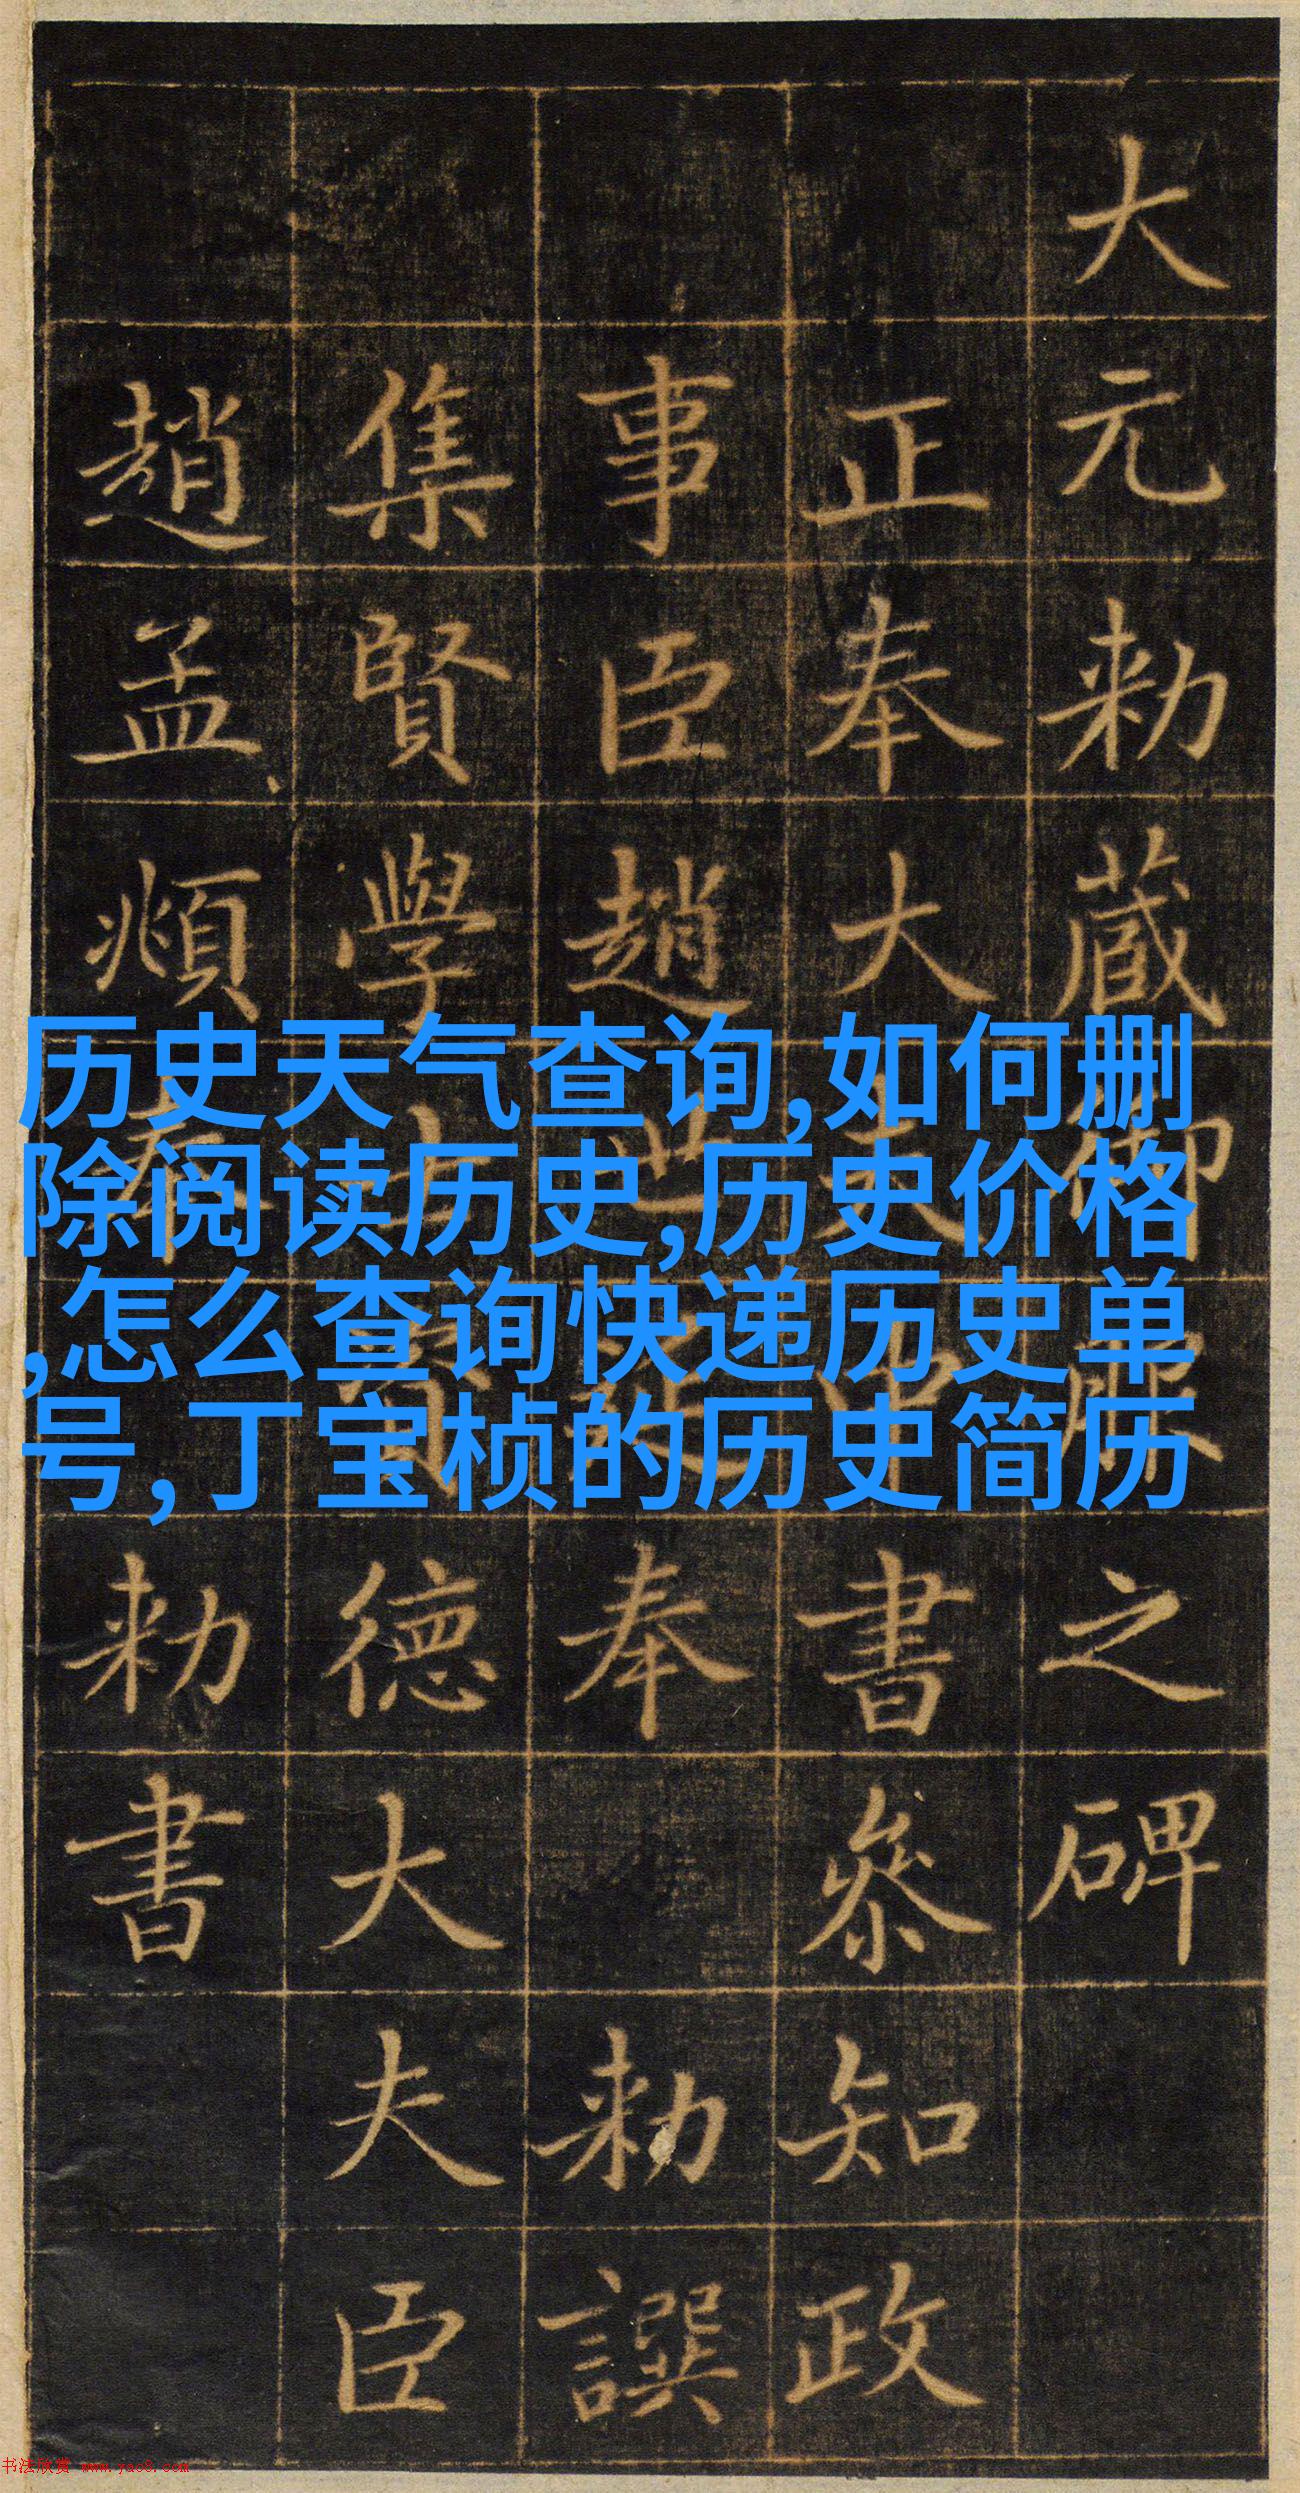 大元勑蔵御服之碑
正奉大夫中書叅知政
事臣趙世延奉勑譔
集賢學士資德大夫臣
趙孟頫奉勑書
历史天气查询,如何删
除阅读历史,历史价格
,怎么查询快递历史单
号,丁宝桢的历史简历
书法欣赏 www.yac8.com